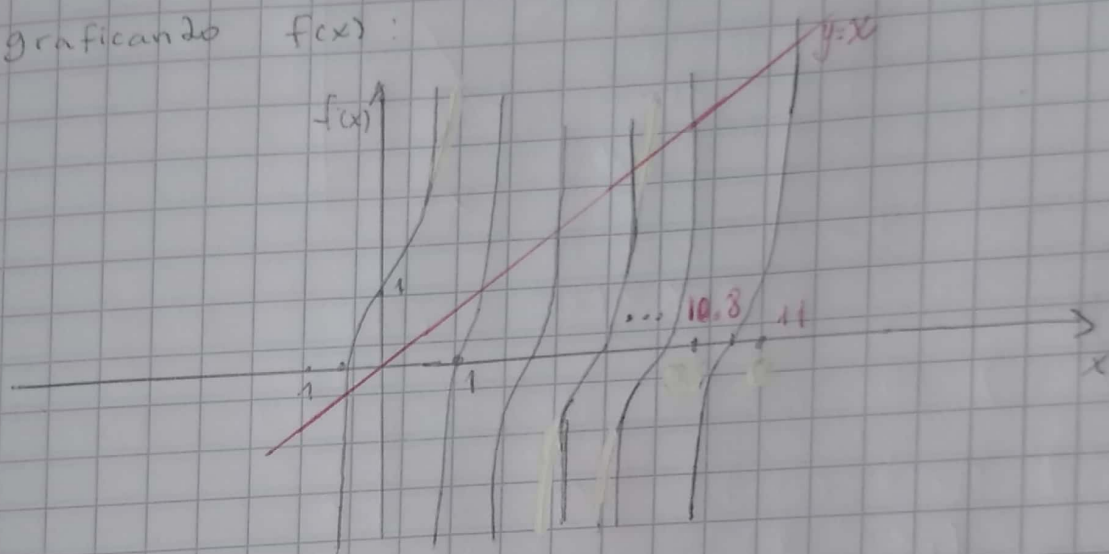 graficando f(x) :
y=x
f(x)
1
... 10.8 11
1 1
x